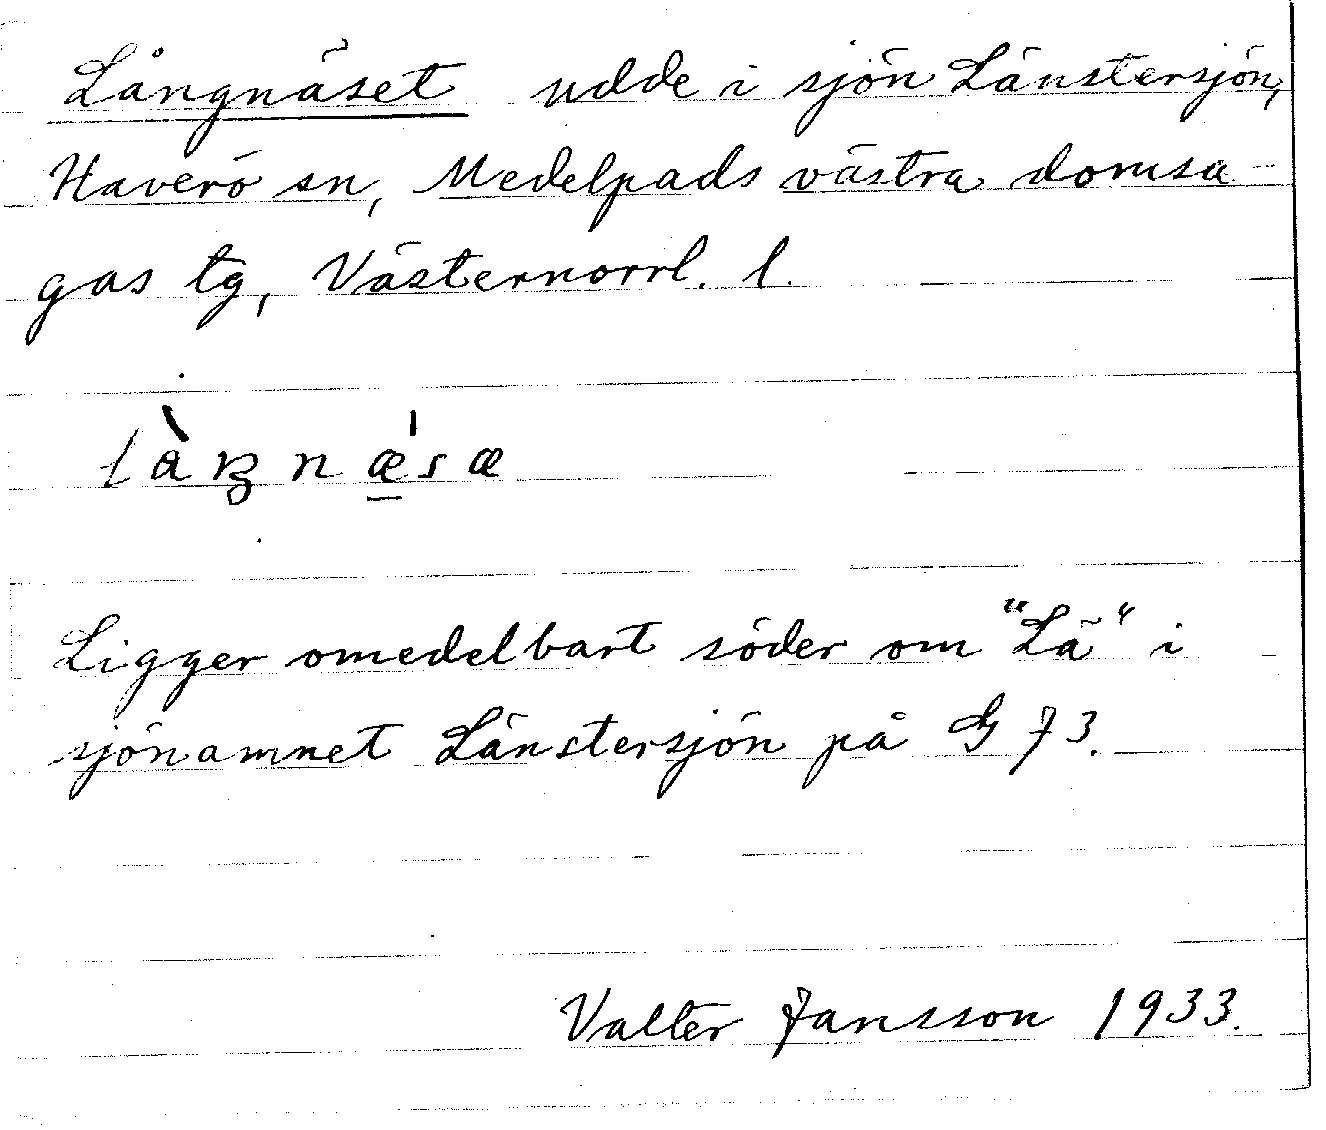 Långnäset udde i sjön Länstersjön,
Haverö sn, Medelpads västra domsa-
gas tg, Västernorrl. l.
làŋnǽsæ
Ligger omedelbart söder om "Lä" i
sjönamnet Länstersjön på G 73.
Valter Jansson 1933.